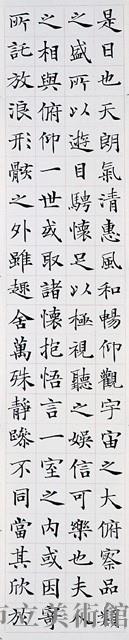 是日也天朗氣清惠風和暢仰觀宇宙之大俯察品類
之盛所以遊目騁懷足以極視聽之娛信可樂也夫人
之相與俯仰一世或取諸懷抱悟言一室之內或因寄
所託放浪形骸之外雖趣舍萬殊靜躁不同當其欣於
市立美術館